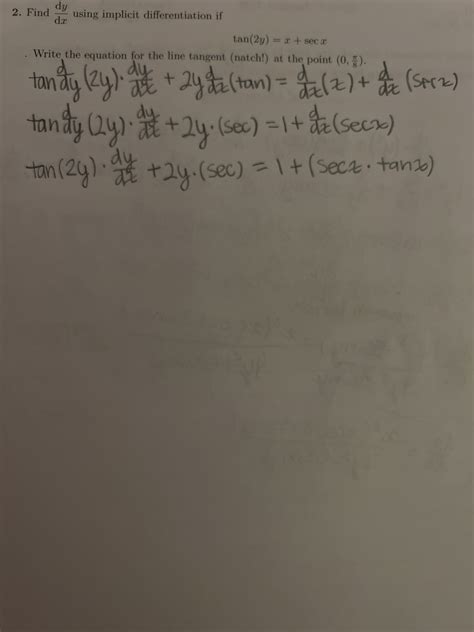 2. Find dy/dx using implicit differentiation if
tan(2y) = x + sec x
. Write the equation for the line tangent (natch!) at the point (0, π/8).
tan d/dy (2y) · dy/dx + 2y d/dx (tan) = d/dx (x) + d/dx (sec x)
tan d/dy (2y) · dy/dx + 2y · (sec) = 1 + d/dx (secx)
tan(2y) · dy/dx + 2y · (sec) = 1 + (secx · tanx)